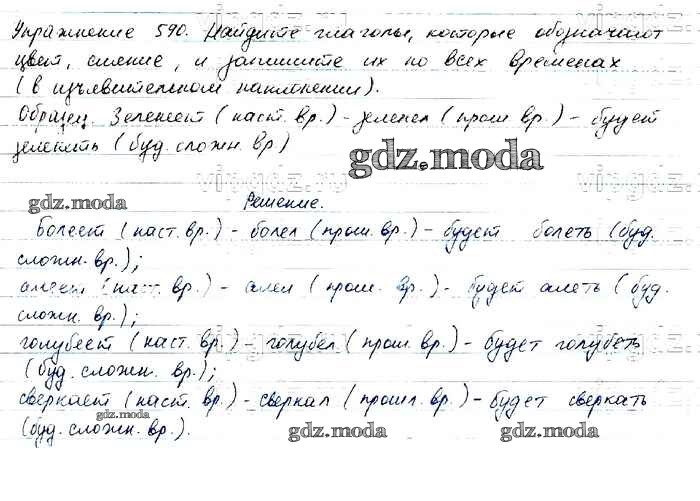 Упражнение 590. Найдите глаголы, которые обозначают
цвет, сияние, и запишите их во всех временах
(в изъявительном наклонении).
Образец. Зеленеет (наст. вр.) - зеленел (прош вр.) - будет
зеленеть (буд. сложн. вр)
gdz.moda
gdz.moda
Решение.
Болеет (наст. вр.) - болел (прош. вр.) - будет болеть (буд.
сложн. вр.);
алеет (наст. вр.) - алел (прош. вр.) - будет алеть (буд.
сложн. вр.);
голубеет (наст. вр.) - голубел (прош. вр.) - будет голубеть
(буд. сложн. вр.);
сверкает (наст. вр.) - сверкал (прошл. вр.) - будет сверкать
gdz.moda
(буд. сложн. вр.).
gdz.moda
gdz.moda